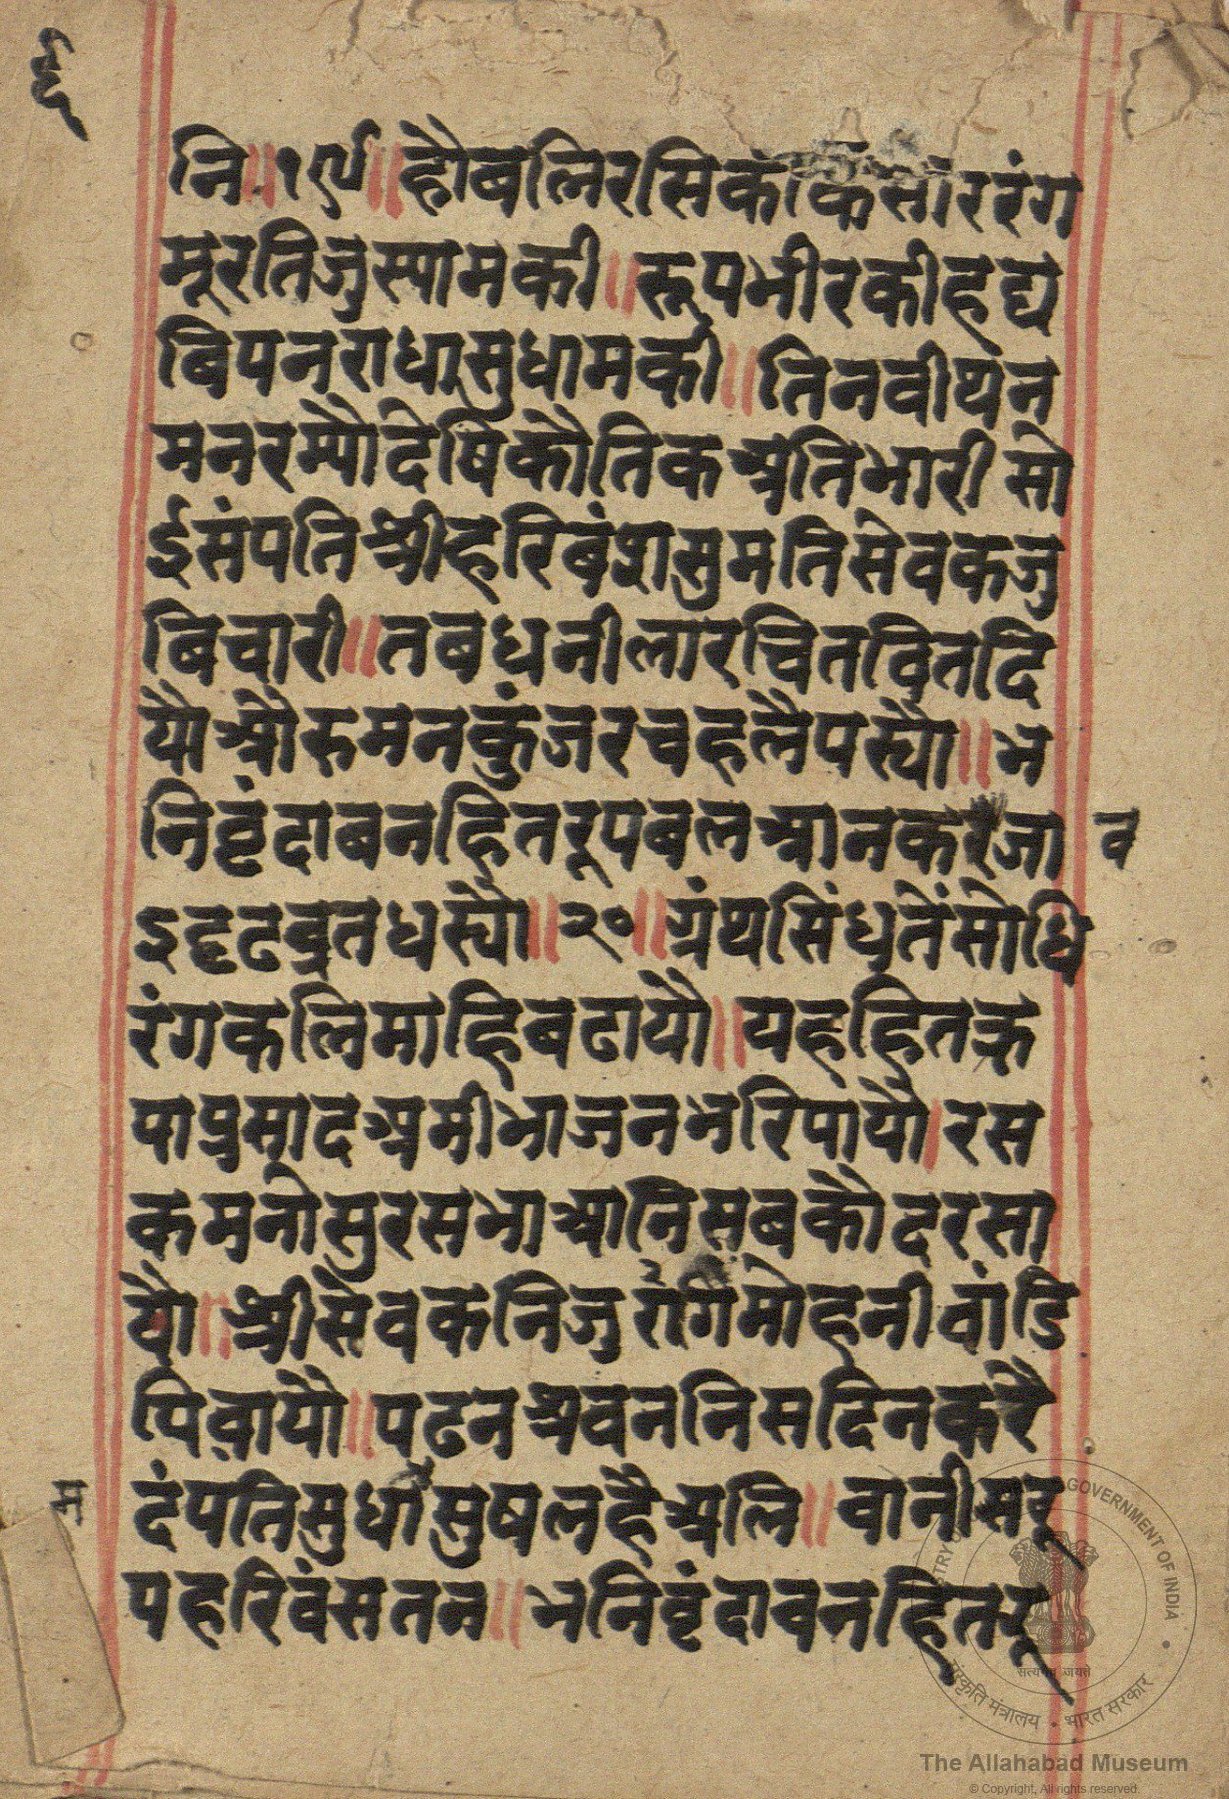 ६
नि॥१९॥हौबलिरसिकाकेसौररंग
मूरतिजुस्यामकी॥रूपभीरकीहद्य
बिपनराधासुधामकी॥तिनवीथन
मनरम्यौदेषिकौतिकअतिभारीसो
ईसंपतिश्रीहरिबंशसुमतिसेवकजु
बिचारी॥तबधनीलारचितवितदि
यौऔरुमनकुंजरचहलैपस्यौ॥भ
निवृंदाबनहितरूपबलआनकरैजा
व
इदृढव्रतधस्यौ॥२०॥ग्रंथसिंधुतेंसोधि
रंगकलिमाहिबढायौ॥यहहितकृ
पाप्रसादअमीभाजनभरिपायौ।रस
कमनोसुरसभाआनिसबकौदरसा
यौ॥श्रीसेवकनिजुरंगिमोहनीवांडि
पिवायौ॥पढनश्रवननिसदिनकरै
दंपतिसुधांसुषलहैअलि॥वानीसरू
म
पहरिवंसतन॥भनिवृंदावनहितरू
MINISTRY OF CULTURE GOVERNMENT OF INDIA
सत्यमेव जयते
संस्कृति मंत्रालय • भारत सरकार
The Allahabad Museum
© Copyright, All rights reserved.